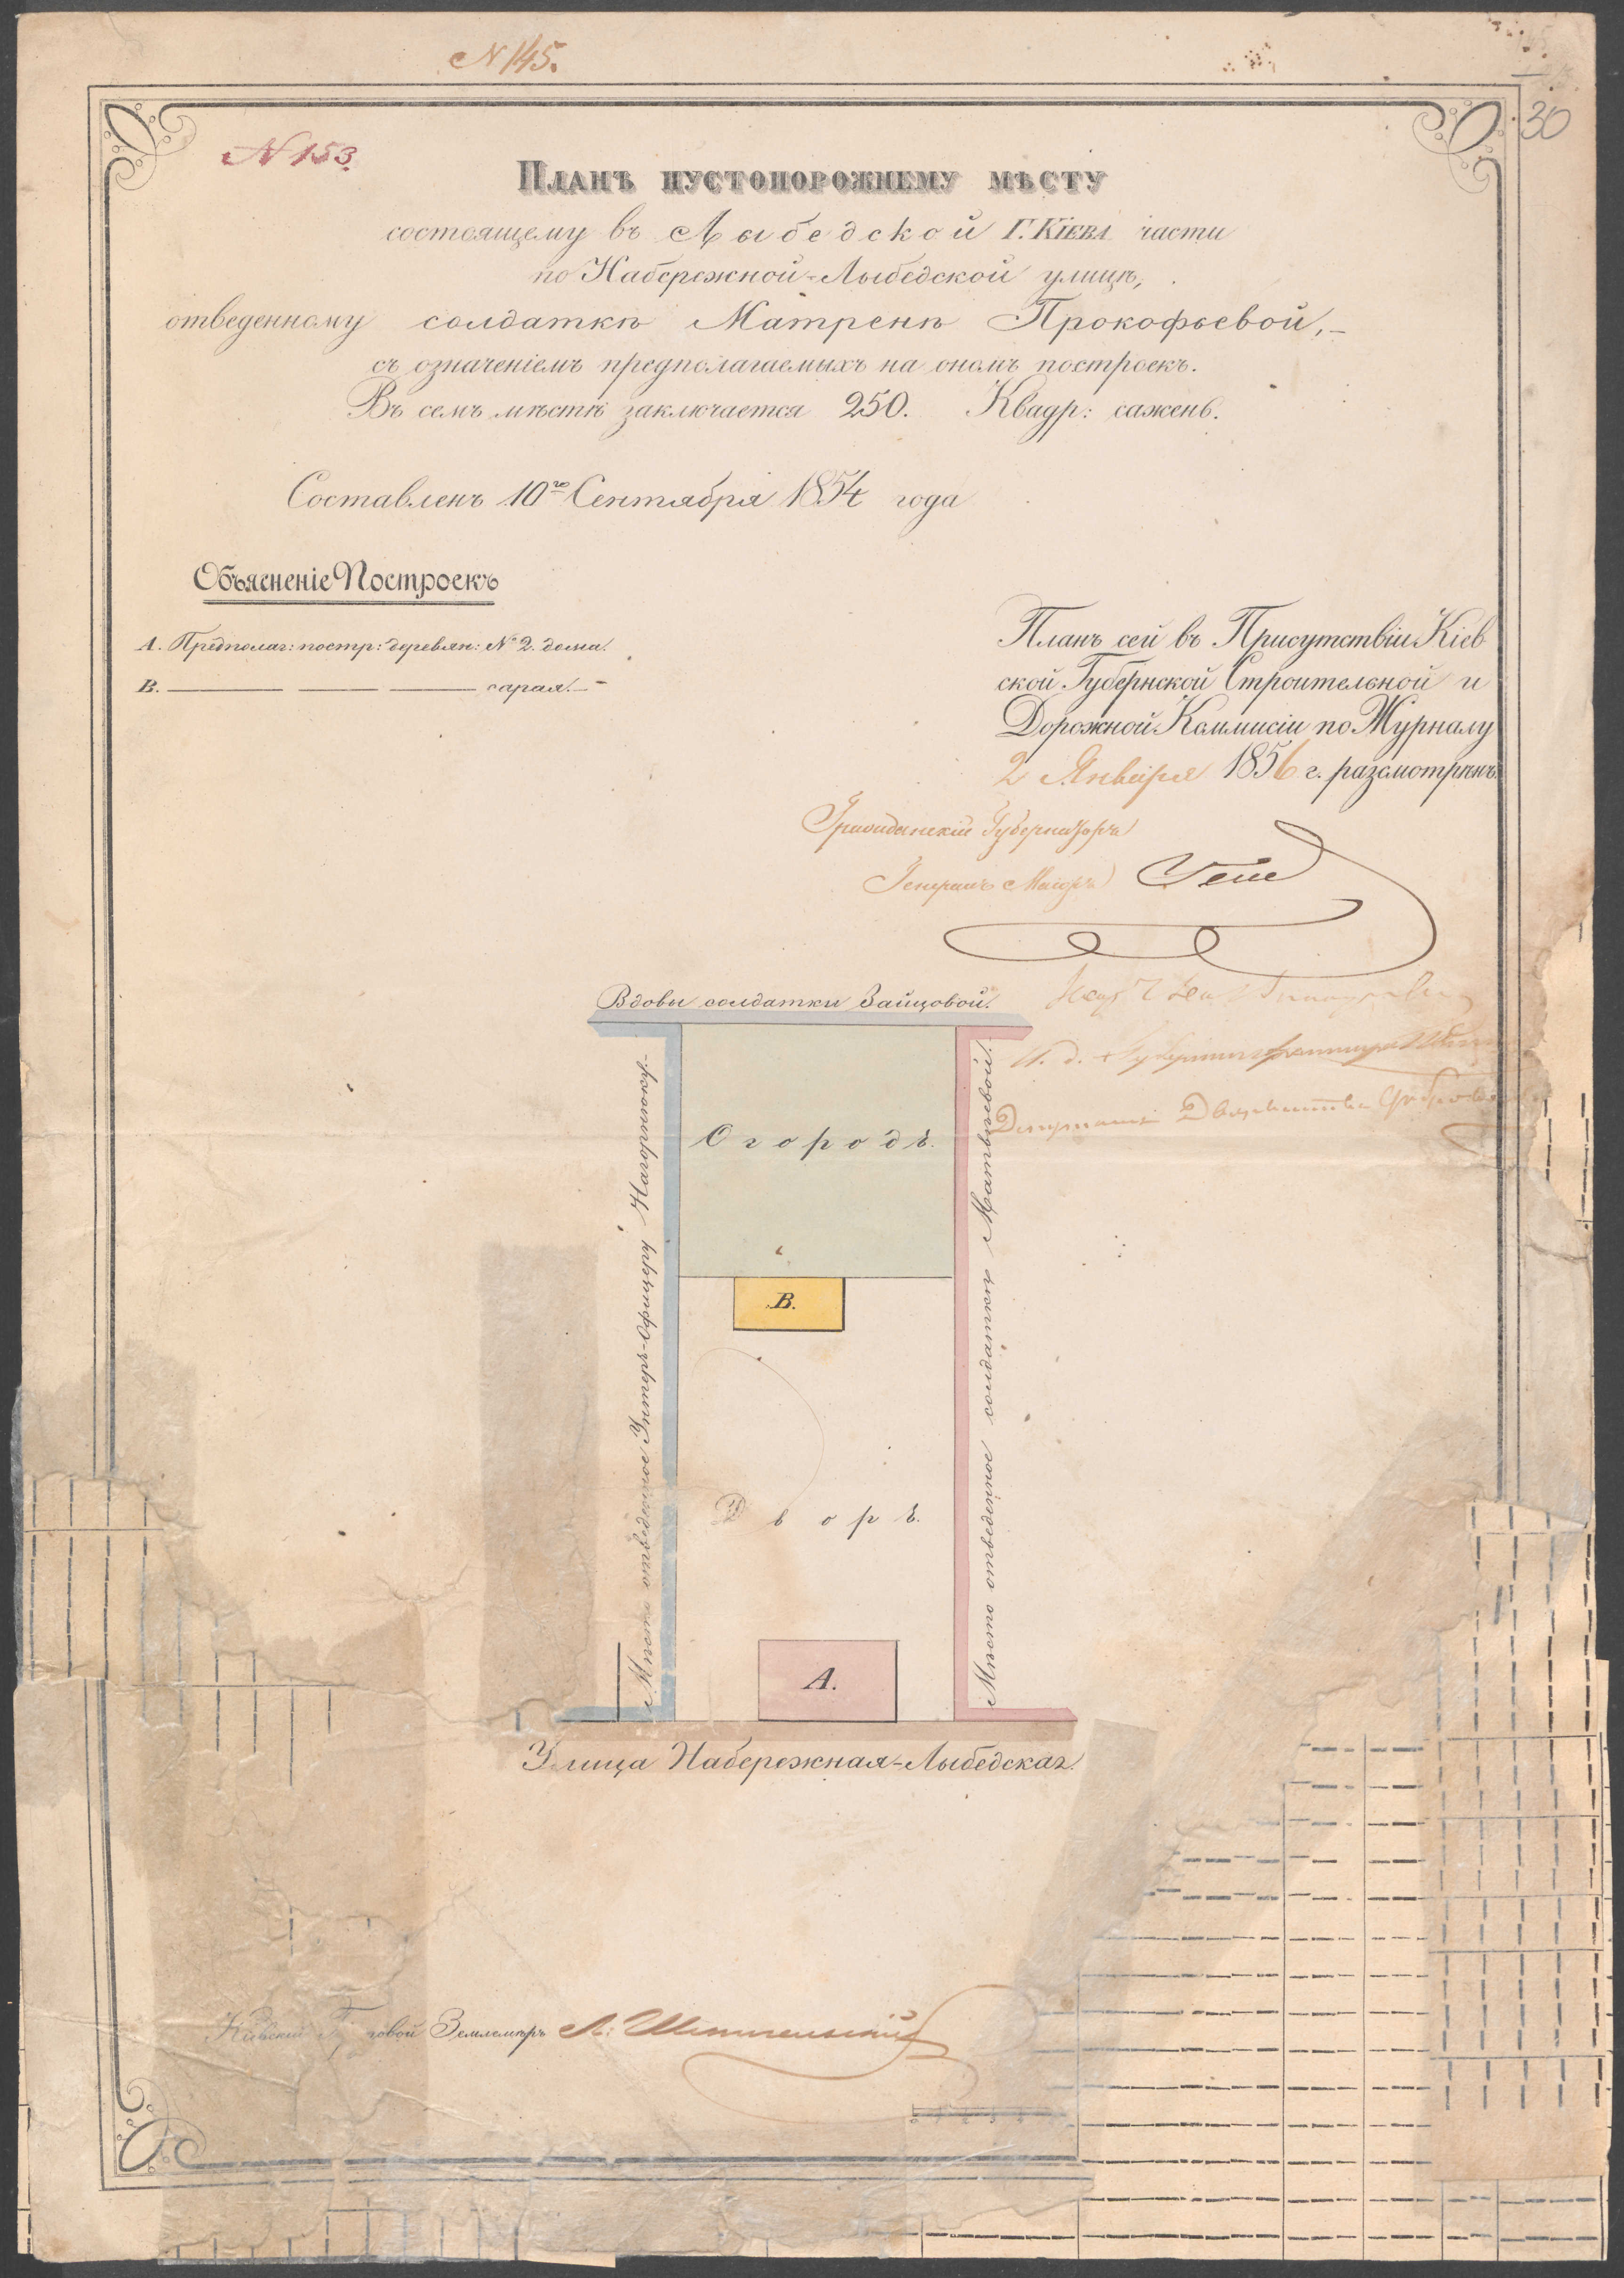 N 145.
30
N 153.
Планъ пустопорожнему мѣсту
состоящему въ Лыбедской Г. Кіева части
по Набережной-Лыбедской улицѣ,
отведенному солдаткѣ Матренѣ Прокофьевой,
съ означеніемъ предполагаемыхъ на ономъ построекъ.
Въ семъ мѣстѣ заключается 250. Квадр: сажень.
Составленъ 10го Сентября 1854 года
Объясненіе Построекъ
А. Предполаг: постр: деревян: № 2. дома.
В. сарая.
Планъ сей въ Присутствіи Кіев
ской Губернской Строительной и
Дорожной Коммисіи по Журналу
2 Января 1856 г. разсмотрѣнъ.
Гражданскій Губернаторъ
Генералъ Маіоръ Гессе
И. д.
Депутатъ Дворянства
Вдовы солдатки Зайцовой.
Мѣсто отведенное Унтеръ-Офицеру Нагорнюку.
Мѣсто отведенное солдаткѣ Матвѣевой.
Огородъ.
В.
Дворъ.
А.
Улица Набережная-Лыбедская.
Кіевскій говой Землемѣръ